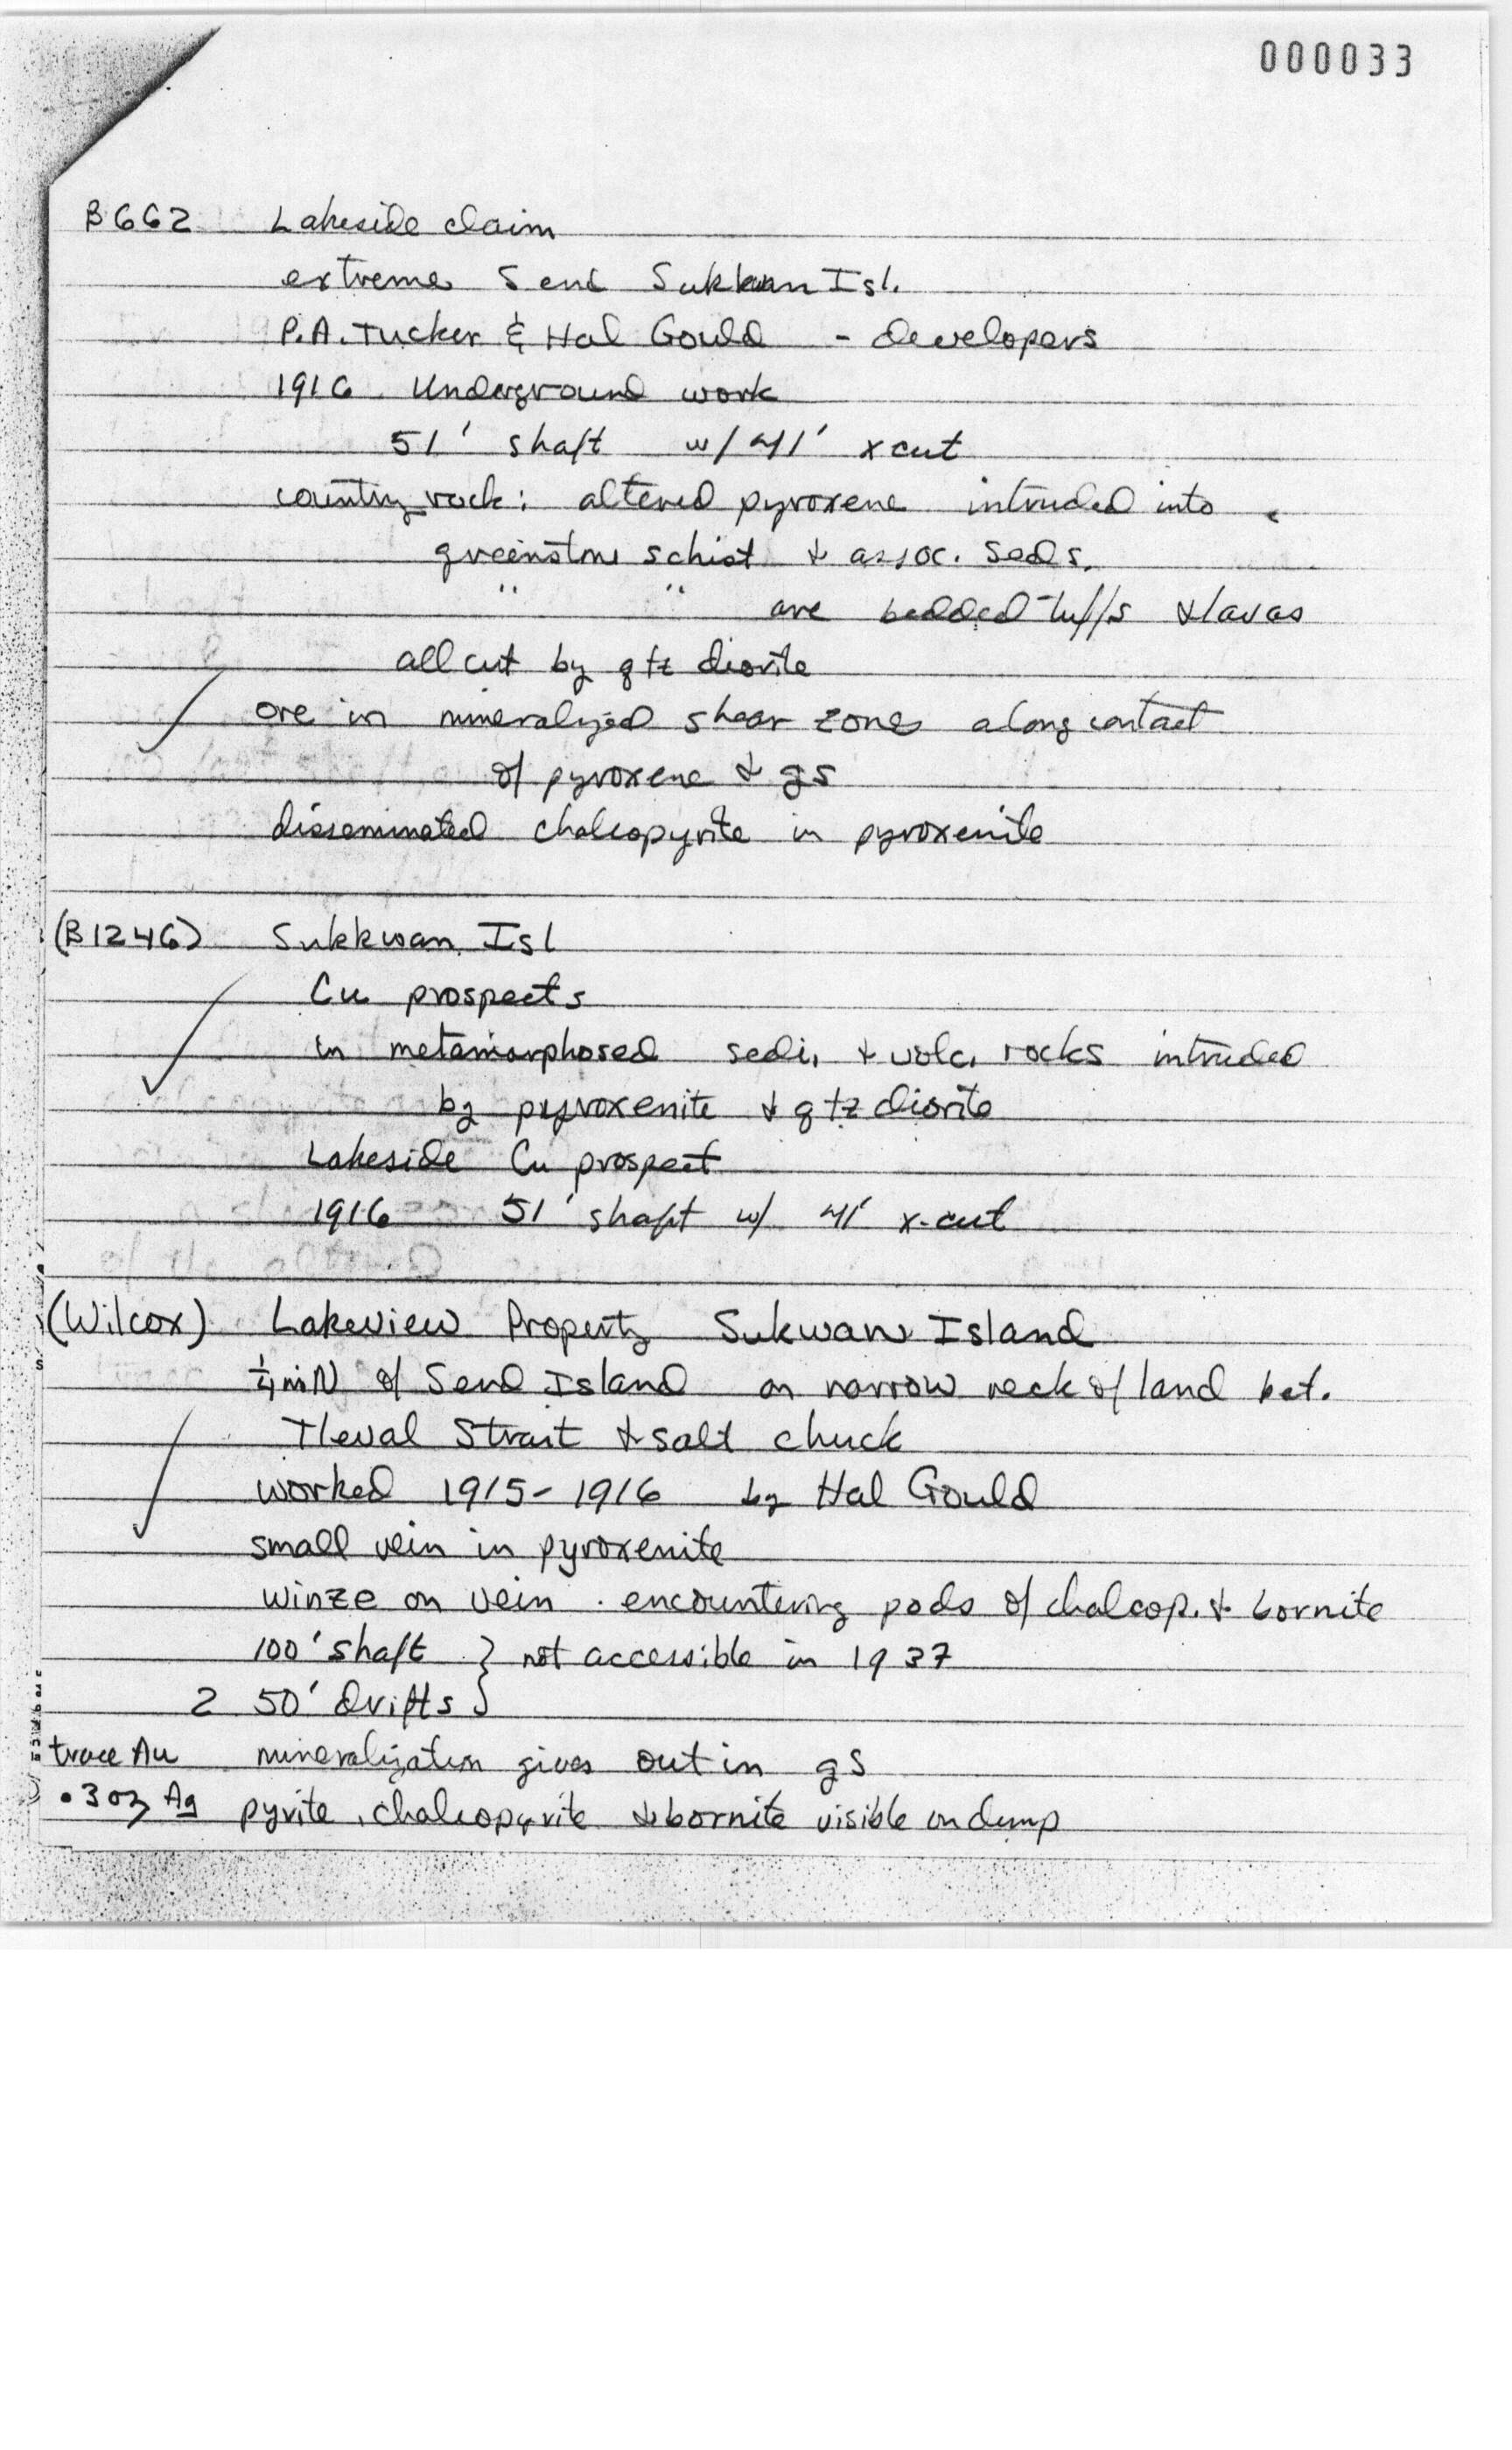 000033
B662 Lakeside claim
extreme S end Sukkwan Isl.
P.A. Tucker & Hal Gould - developers
1916 Underground work
51' shaft w/ 41' xcut
country rock: altered pyroxene intruded into
greenstone schist & assoc. seds.
" " are bedded tuffs & lavas
all cut by qtz diorite
ore in mineralized shear zones along contact
of pyroxene & gs
disseminated chalcopyrite in pyroxenite
(B1246) Sukkwan Isl
Cu prospects
in metamorphosed sedi. & volc. rocks intruded
by pyroxenite & qtz diorite
Lakeside Cu prospect
1916 51' shaft w/ 41' x-cut
(Wilcox) Lakeview Property Sukwan Island
1/4 mi N of S end Island on narrow neck of land bet.
Tleval Strait & salt chuck
worked 1915-1916 by Hal Gould
small vein in pyroxenite
winze on vein. encountering pods of chalcop. & bornite
100' shaft } not accessible in 1937
2 50' drifts }
trace Au mineralization gives out in gs
.3 oz Ag pyrite, chalcopyrite & bornite visible on dump